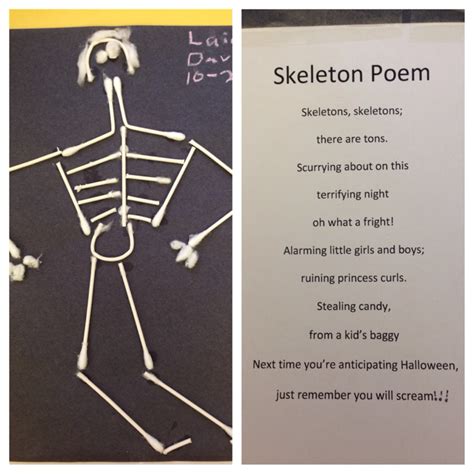 Skeleton Poem
Skeletons, skeletons;
there are tons.
Scurrying about on this
terrifying night
oh what a fright!
Alarming little girls and boys;
ruining princess curls.
Stealing candy,
from a kid's baggy
Next time you're anticipating Halloween,
just remember you will scream!!!